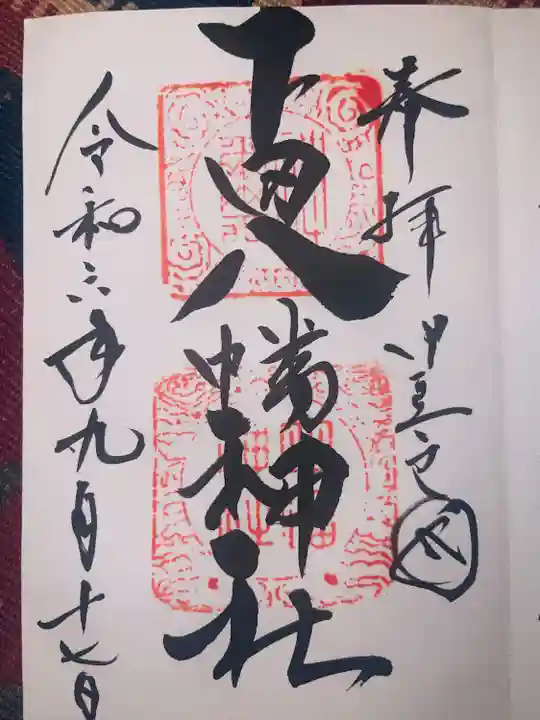 奉拝 伊豆
下田八幡神社
令和六年九月十七日